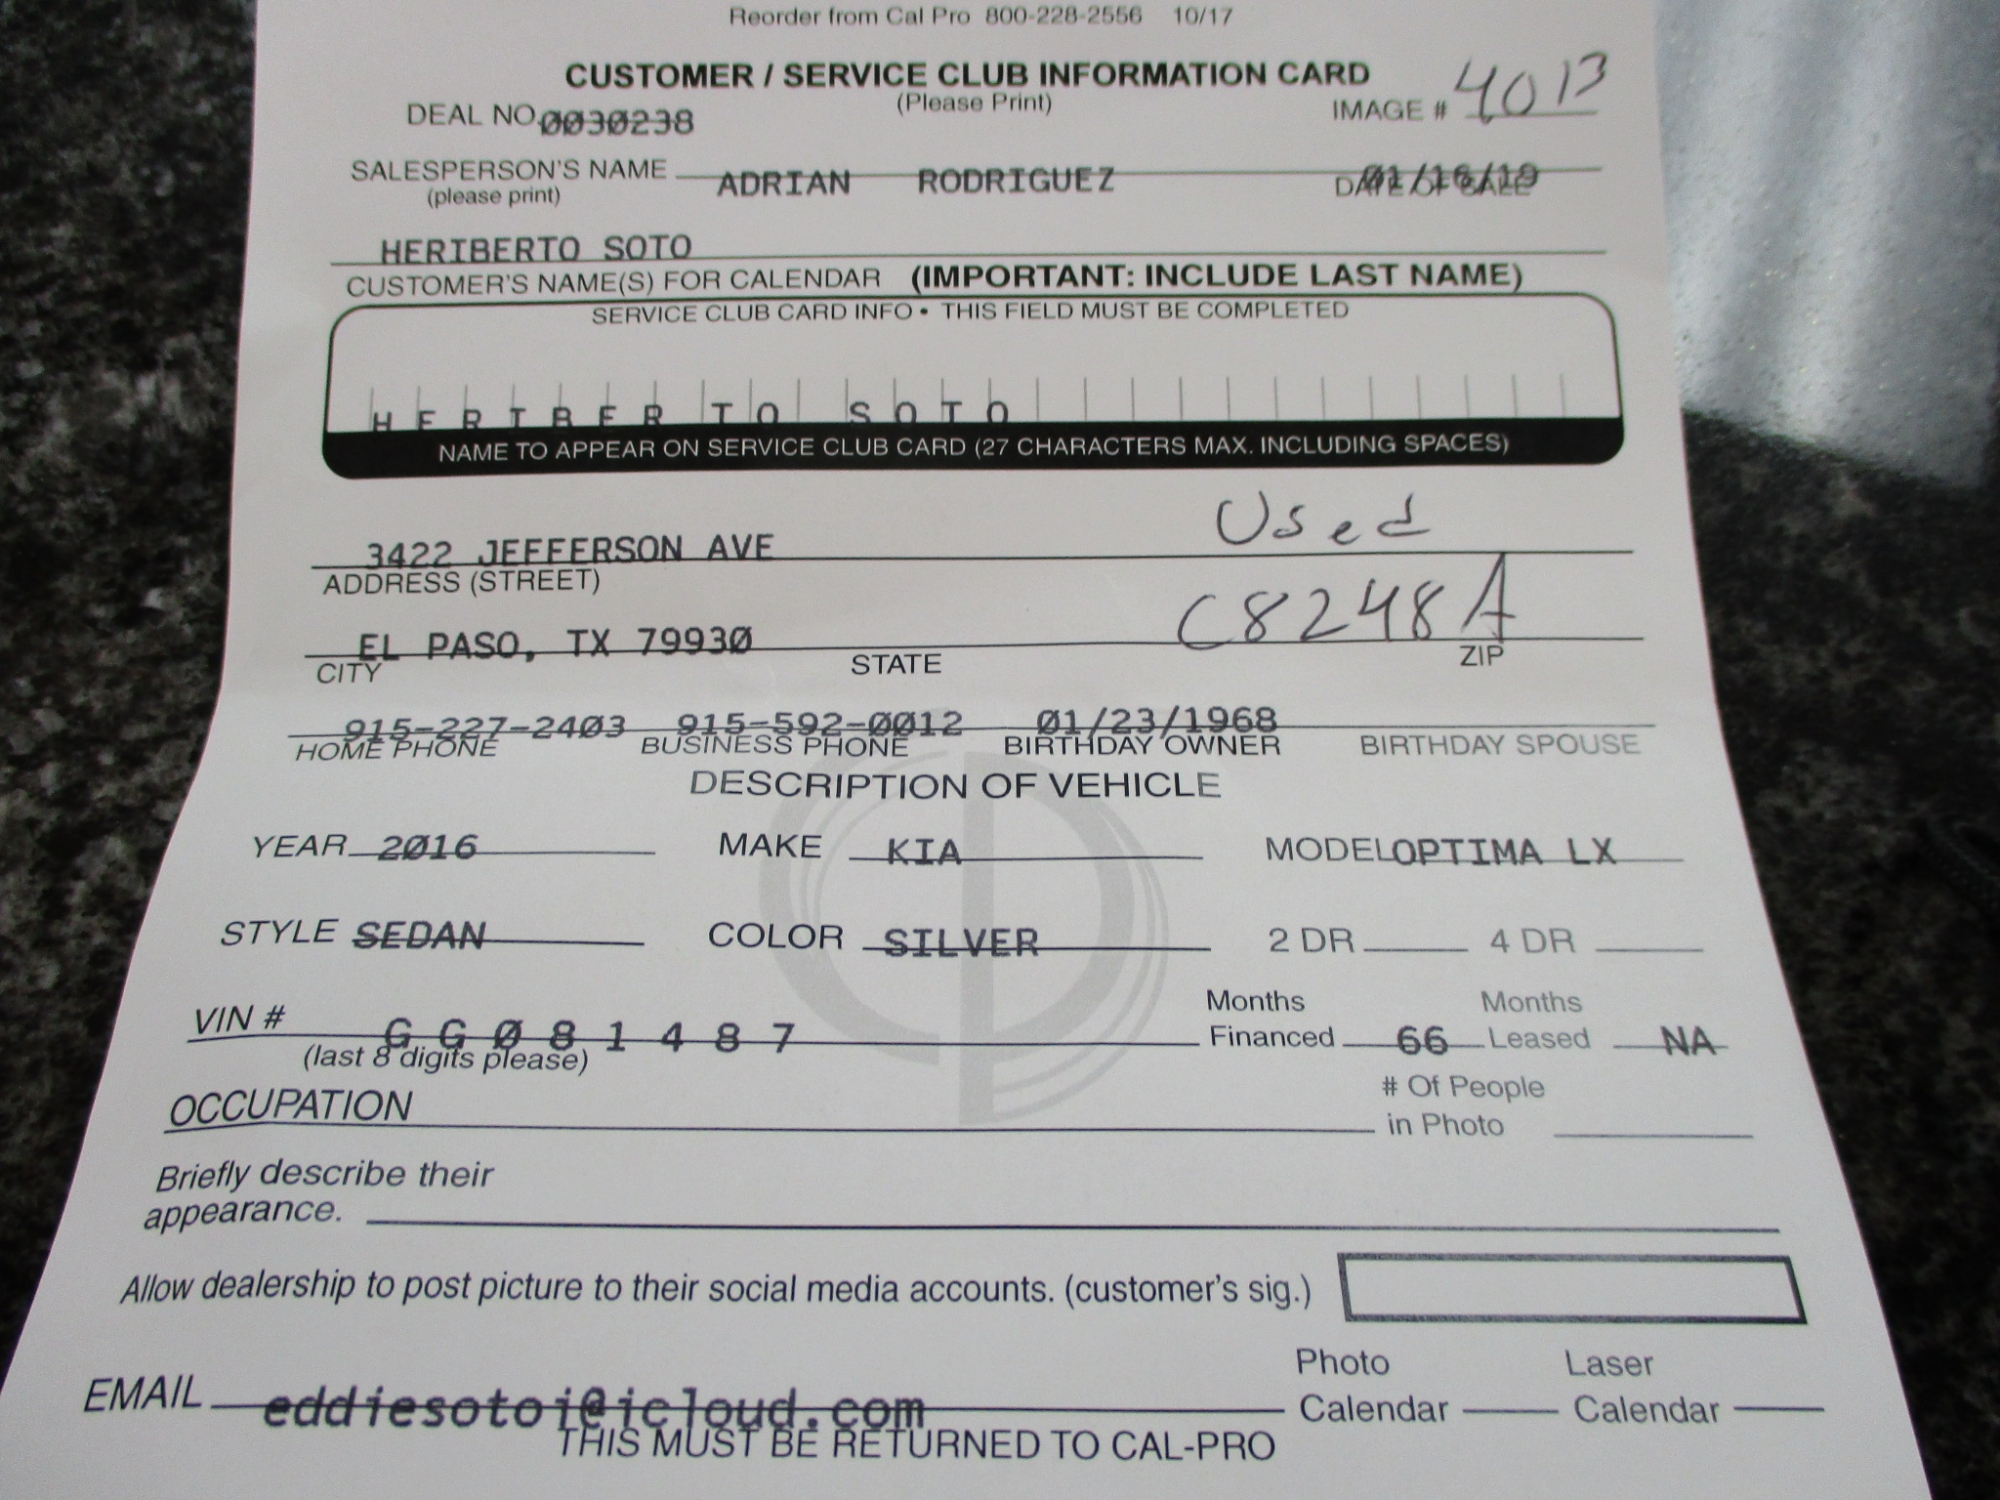 Reorder from Cal Pro 800-228-2556 10/17
CUSTOMER / SERVICE CLUB INFORMATION CARD
(Please Print)
DEAL NO. 0030238
IMAGE # 4013
SALESPERSON'S NAME ADRIAN RODRIGUEZ DATE OF SALE 01/16/19
(please print)
HERIBERTO SOTO
CUSTOMER'S NAME(S) FOR CALENDAR (IMPORTANT: INCLUDE LAST NAME)
SERVICE CLUB CARD INFO • THIS FIELD MUST BE COMPLETED
HERIBERTO SOTO
NAME TO APPEAR ON SERVICE CLUB CARD (27 CHARACTERS MAX. INCLUDING SPACES)
3422 JEFFERSON AVE Used
ADDRESS (STREET)
EL PASO, TX 79930 C8248A
CITY STATE ZIP
915-227-2403 915-592-0012 01/23/1968
HOME PHONE BUSINESS PHONE BIRTHDAY OWNER BIRTHDAY SPOUSE
DESCRIPTION OF VEHICLE
YEAR 2016 MAKE KIA MODEL OPTIMA LX
STYLE SEDAN COLOR SILVER 2 DR 4 DR
VIN # GG081487 Months Financed 66 Months Leased NA
(last 8 digits please)
OCCUPATION # Of People in Photo
Briefly describe their
appearance.
Allow dealership to post picture to their social media accounts. (customer's sig.)
EMAIL eddiesotoi@icloud.com Photo Calendar Laser Calendar
THIS MUST BE RETURNED TO CAL-PRO